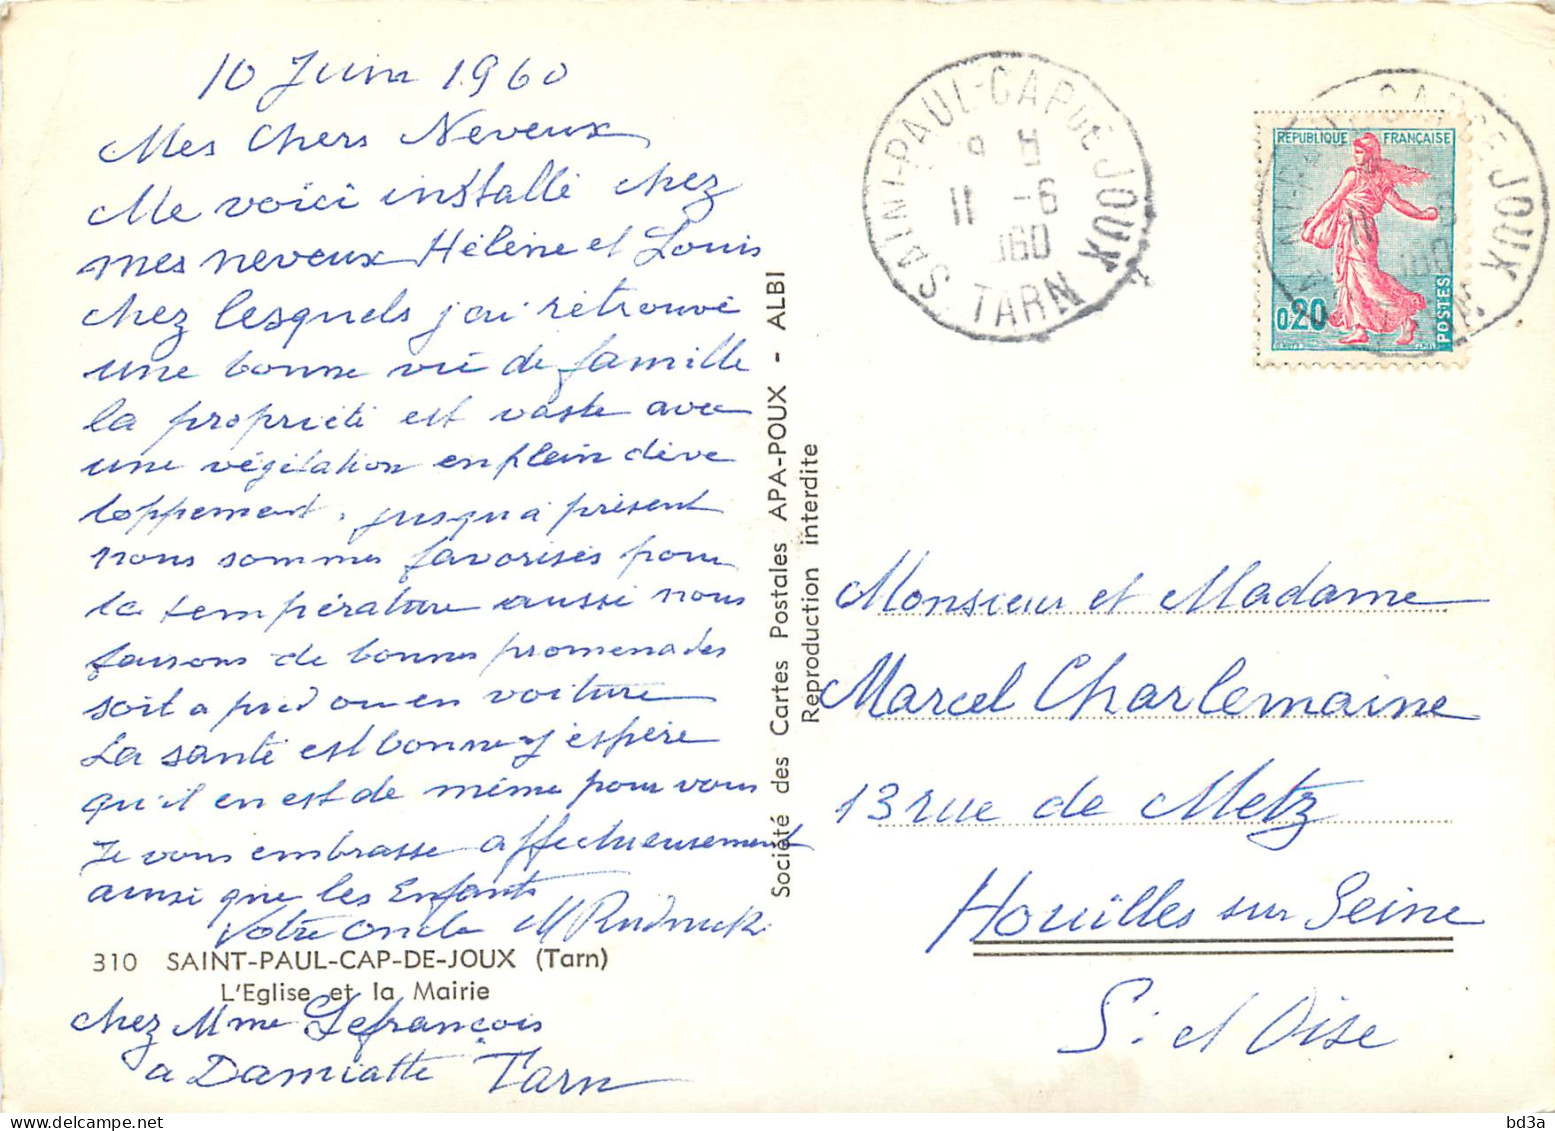 10 Juin 1960
Mes Chers Neveux
Me voici installé chez
mes neveux Hélène et Louis
chez lesquels j'ai rétrouvé
une bonne vie de famille
la propriété est vaste avec
une végétation en plein déve
loppement, jusqu'a présent
nous sommes favorisés pour
la température aussi nous
faisons de bonnes promenades
soit a pied ou en voiture
La santé est bonne j'éspère
qu'il en est de même pour vous
Je vous embrasse affectueusement
ainsi que les Enfants
Votre oncle M
310 SAINT-PAUL-CAP-DE-JOUX (Tarn)
L'Eglise et la Mairie
chez Mme Lefrançois
a Damiatte Tarn
Société des Cartes Postales APA-POUX - ALBI
Reproduction interdite
SAINT-PAUL-CAP DE JOUX
11 -6
1960
TARN
REPUBLIQUE FRANÇAISE
0,20
POSTES
Monsieur et Madame
Marcel Charlemaine
13 rue de Metz
Houilles sur Seine
S. et Oise
bd3a